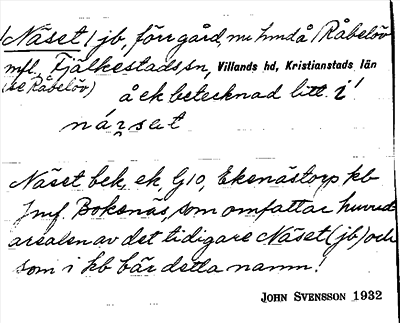 /Näset/ jb, förr gård, nu hmd å /Råbelöv
mfl., Fjälkestads sn, Villands hd, Kristianstads län
(se Råbelöv)
å ek betecknad litt. i!
Näset bek, ek, G10, Ekenästorp kb
Jmf. Bokenäs, som omfattar huvud
arealen av det tidigare Näset (jb) och
som i kb bär detta namn!
JOHN SVENSSON 1932